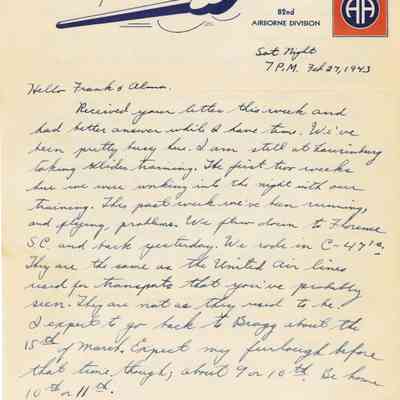 82nd
AIRBORNE DIVISION
AA
Sat. Night
7 P.M. Feb 27, 1943
Hello Frank & Alma.
Received your letter this week and
had better answer while I have time. We've
been pretty busy here. I am still at Laurinburg
taking glider training. The first two weeks
here we were working into the night with our
training. This past week we've been running,
and flying, problems. We flew down to Florence
S.C. and back yesterday. We rode in C-47's.
They are the same as the United Air lines
used for transports that you've probably
seen. They are not as they used to be.
I expect to go back to Bragg about the
15th of March. Expect my furlough before
that time, though; about 9 or 10th. Be home
10th or 11th.